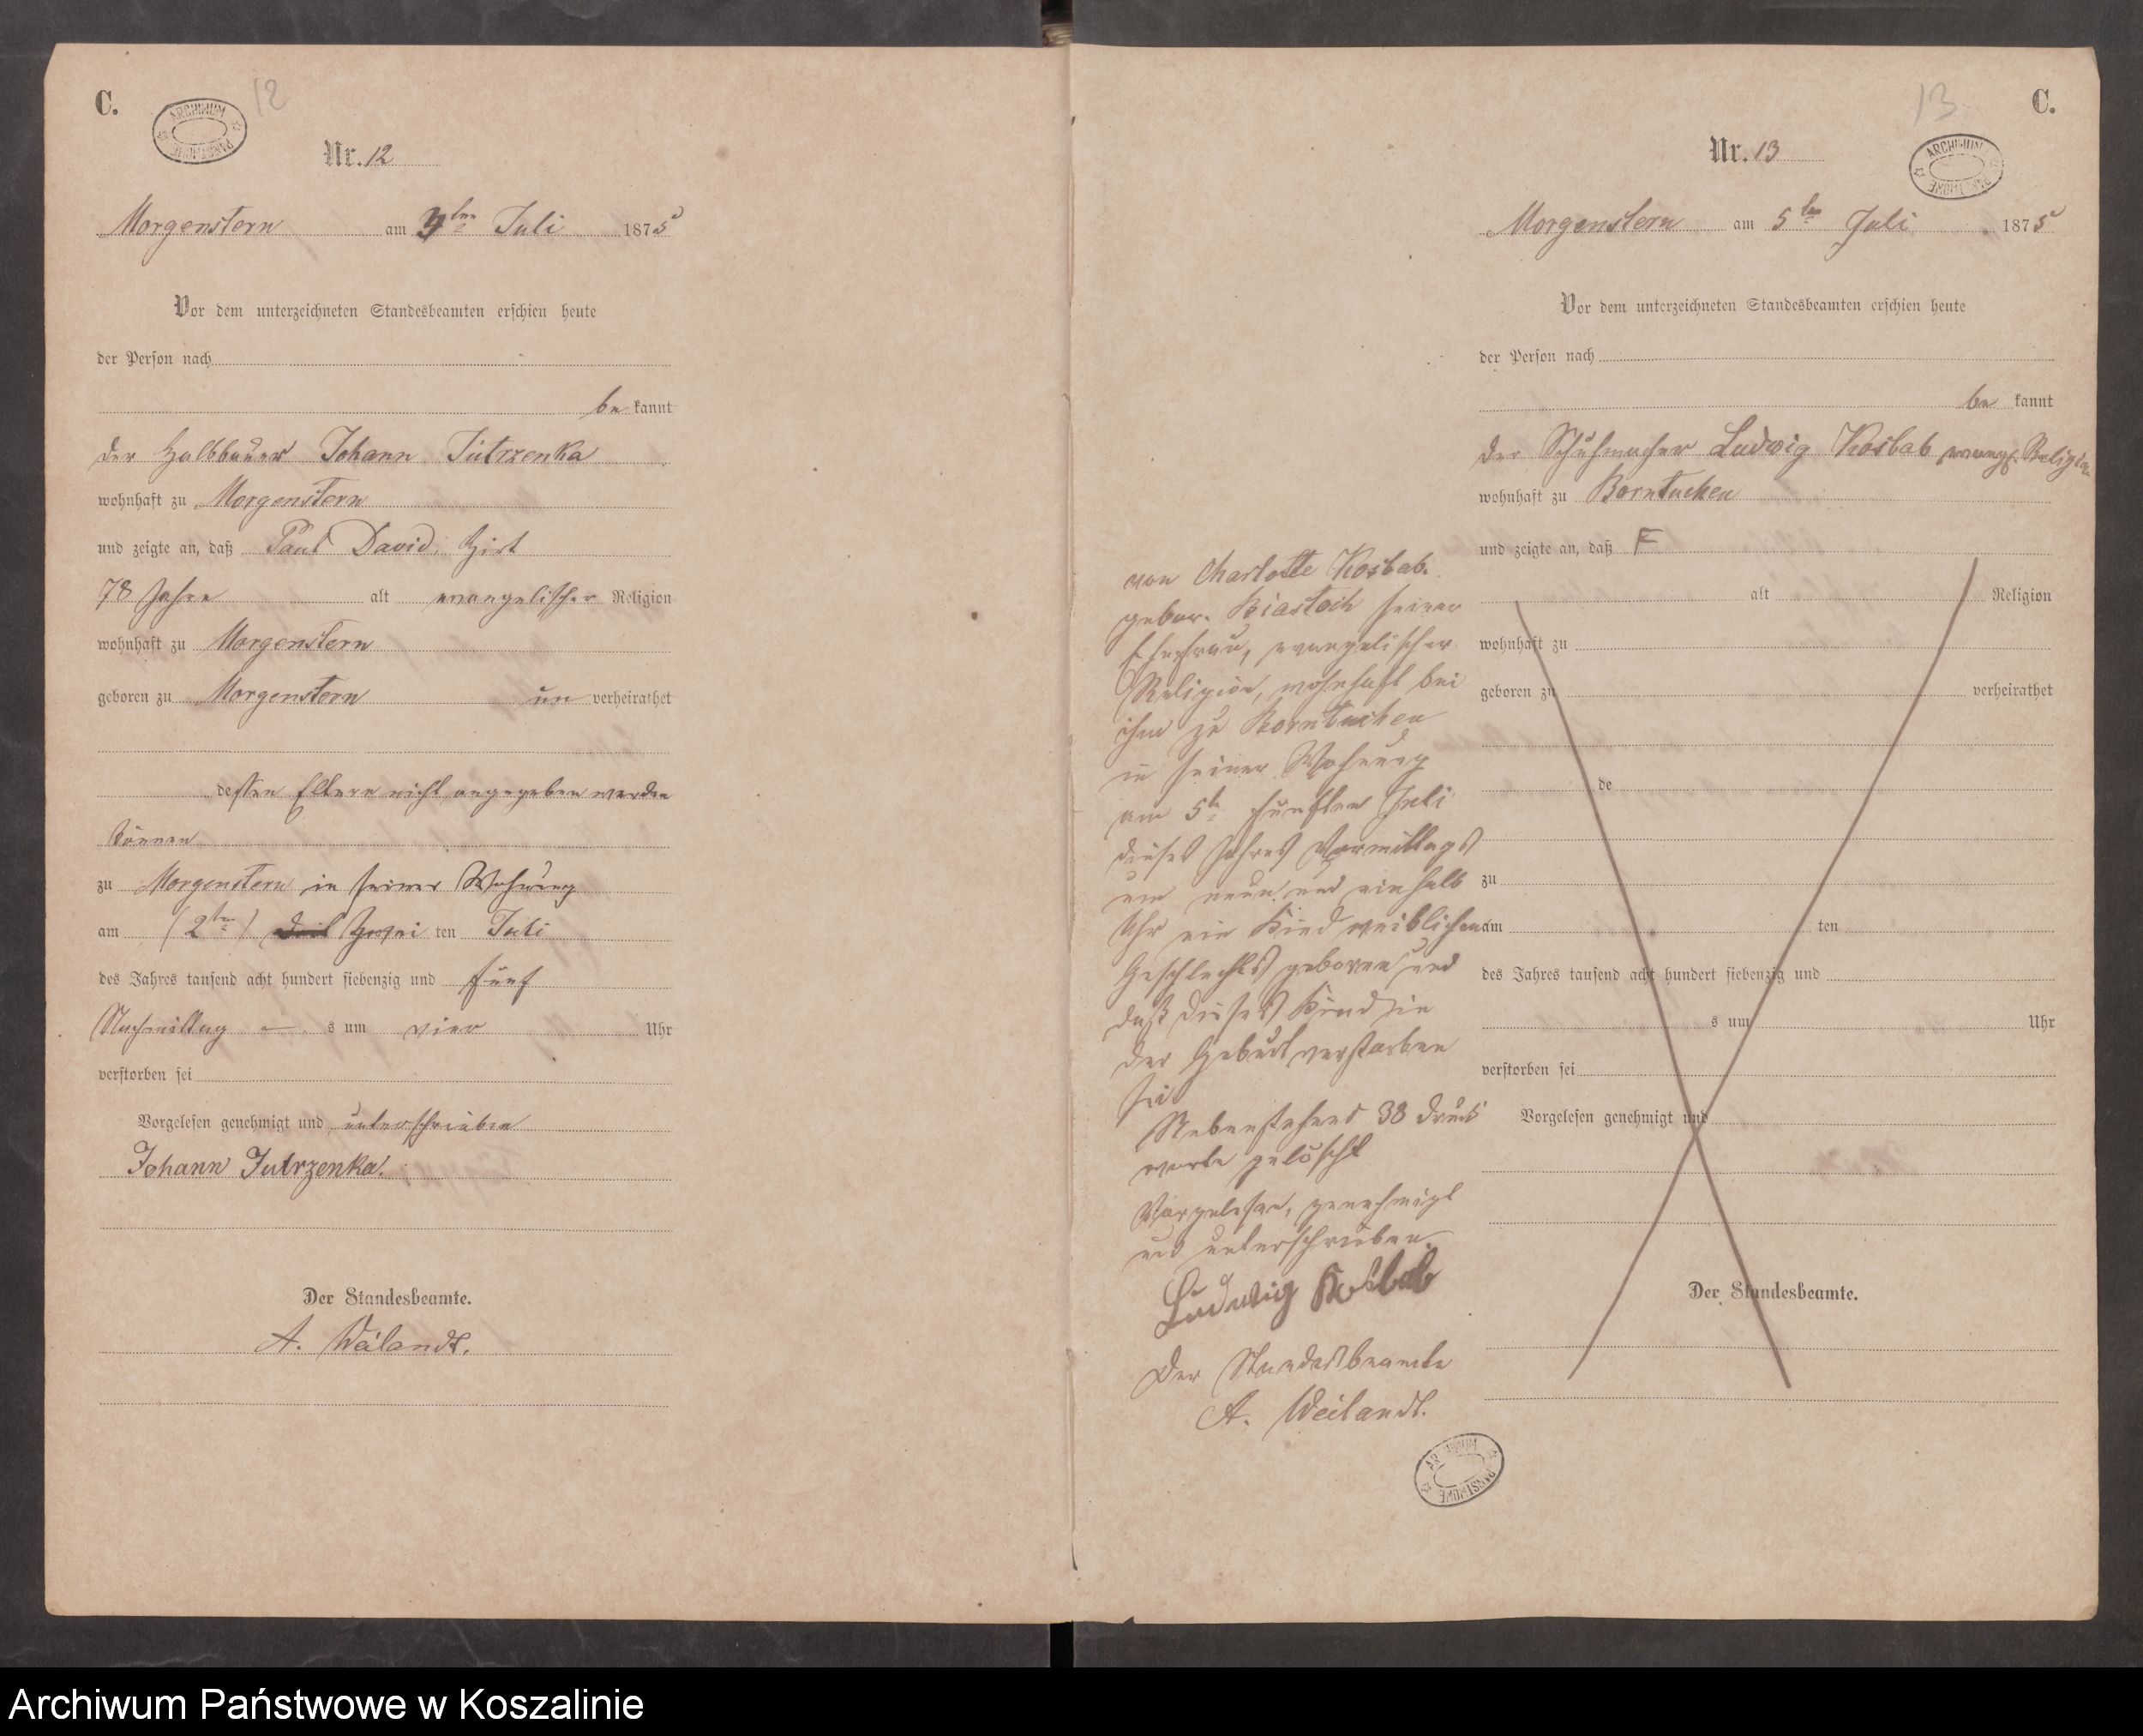 C.
ARCHIWUM PAŃSTWOWE
12
Nr. 12
Morgenstern am 3ten Juli 1875
Vor dem unterzeichneten Standesbeamten erschien heute
der Person nach
be kannt
der Halbbauer Johann Jutrzenka
wohnhaft zu Morgenstern
und zeigte an, daß Paul David Hirt
78 Jahre alt evangelischer Religion
wohnhaft zu Morgenstern
geboren zu Morgenstern un verheirathet
dessen Eltern nicht angegeben werden
können
zu Morgenstern in seiner Wohnung
am (2ten) drei Zwei ten Juli
des Jahres tausend acht hundert siebenzig und fünf
Nachmittag s um vier Uhr
verstorben sei
Vorgelesen genehmigt und unterschrieben
Johann Jutrzenka.
Der Standesbeamte.
A. Weilandt.
13
C.
Nr. 13
ARCHIWUM PAŃSTWOWE
Morgenstern am 5ten Juli 1875
Vor dem unterzeichneten Standesbeamten erschien heute
der Person nach
be kannt
der Schuhmacher Ludwig Kosbab evangl. Religion
wohnhaft zu Borntuchen
und zeigte an, daß F
alt Religion
wohnhaft zu
geboren zu verheirathet
de
zu
am ten
des Jahres tausend acht hundert siebenzig und
s um Uhr
verstorben sei
Vorgelesen genehmigt und
Der Standesbeamte.
von Charlotte Kosbab.
gebor. seiner
Ehefrau, evangelischer
Religion, wohnhaft bei
ihm zu Borntuchen
in seiner Wohnung
am 5ten fünften Juli
dieses Jahres Vormittags
um neun und einhalb
Uhr ein Kind weiblichen
Geschlechts geboren und
daß dieses Kind in
der Geburt verstorben
sei
Nebenstehend 38 Druck
worte gelöscht
Vorgelesen, genehmigt
und unterschrieben
Ludwig Kosbab
Der Standesbeamte
A. Weilandt.
ARCHIWUM PAŃSTWOWE
Archiwum Państwowe w Koszalinie